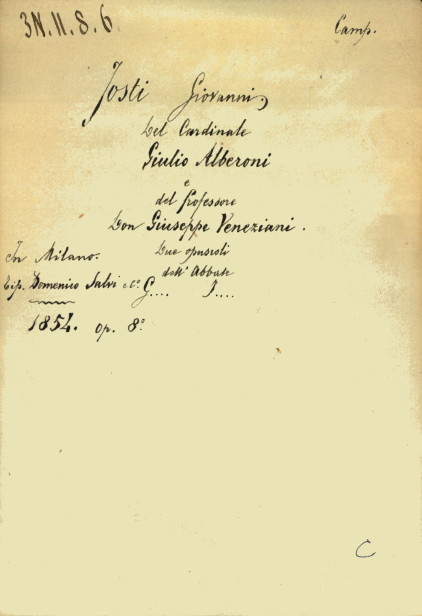 3N.II.8.6
Camp.
Josti Giovanni
Del Cardinale
Giulio Alberoni
e
del Professore
Don Giuseppe Veneziani.
Due opuscoli
dell'Abbate
G.... J....
In Milano.
Tip. Domenico Salvi e Cº
1854. op. 8º
C